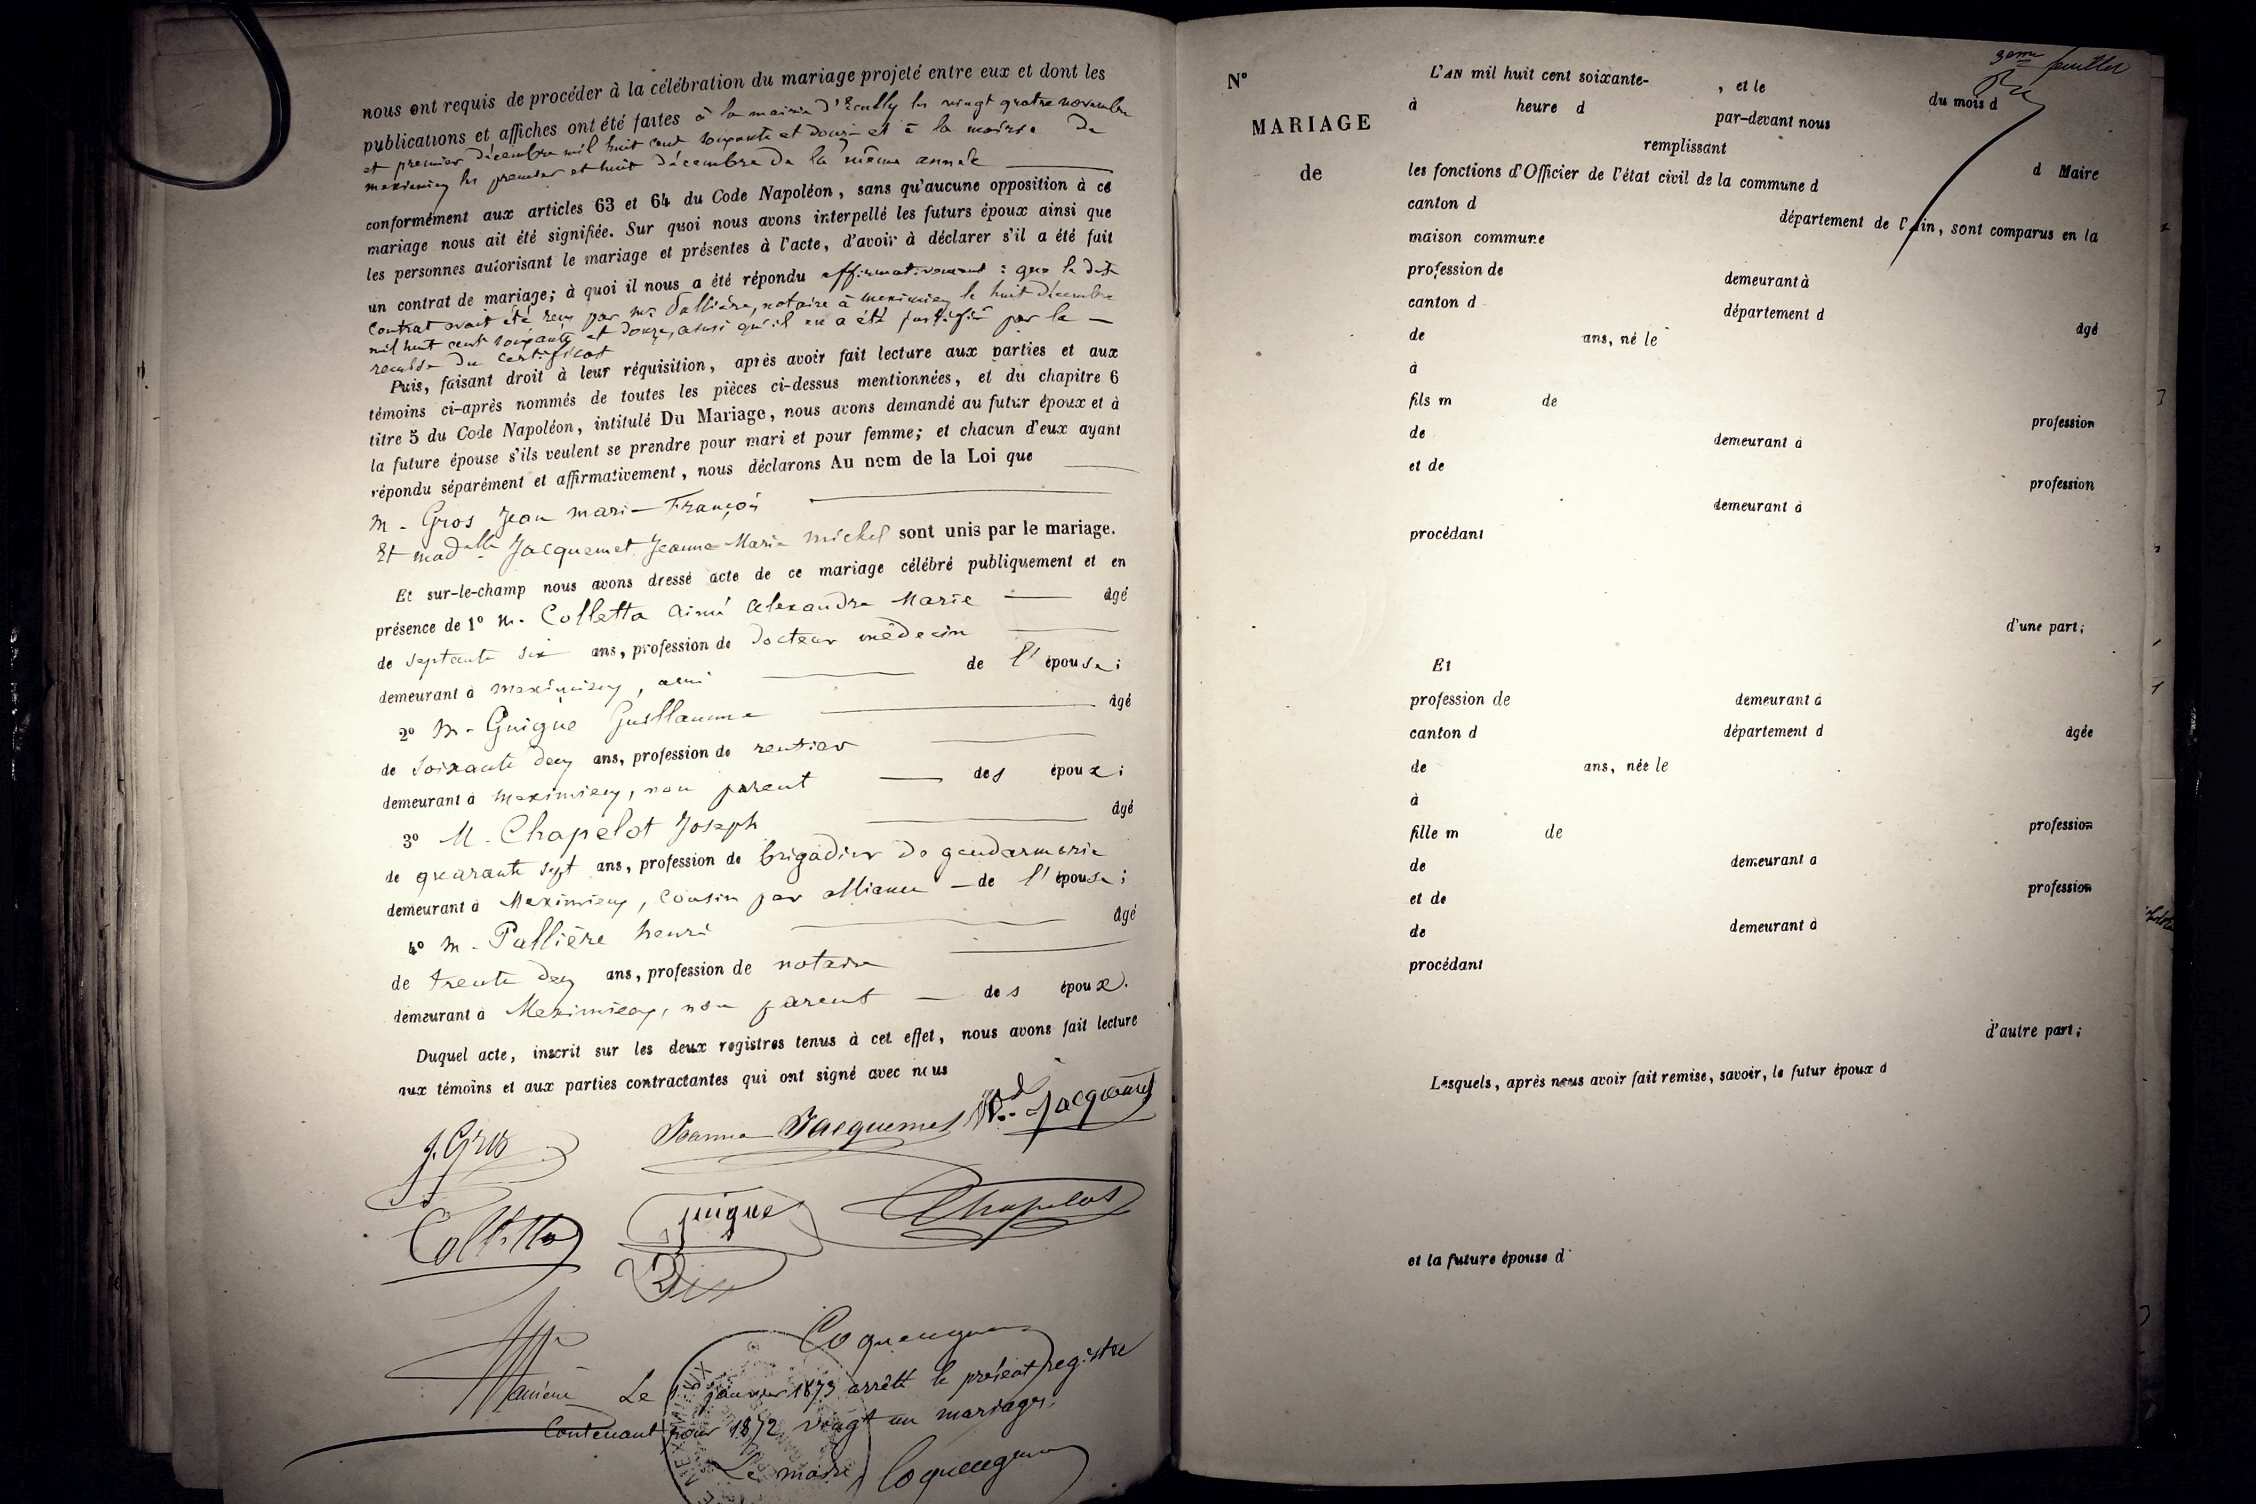 nous ont requis de procéder à la célébration du mariage projeté entre eux et dont les
publications et affiches ont été faites à la mairie d'Ecully les vingt quatre novembre
et premier décembre mil huit cent soixante et douze et à la mairie de
meximieux les premier et huit décembre de la même année
conformément aux articles 63 et 64 du Code Napoléon, sans qu'aucune opposition à ce
mariage nous ait été signifiée. Sur quoi nous avons interpellé les futurs époux ainsi que
les personnes autorisant le mariage et présentes à l'acte, d'avoir à déclarer s'il a été fait
un contrat de mariage; à quoi il nous a été répondu affirmativement : que le dit
contrat avait été reçu par Me Pallière, notaire à meximieux le huit décembre
mil huit cent soixante et douze, ainsi qu'il en a été justifié par la
remise du certificat
Puis, faisant droit à leur réquisition, après avoir fait lecture aux parties et aux
témoins ci-après nommés de toutes les pièces ci-dessus mentionnées, et du chapitre 6
titre 5 du Code Napoléon, intitulé Du Mariage, nous avons demandé au futur époux et à
la future épouse s'ils veulent se prendre pour mari et pour femme; et chacun d'eux ayant
répondu séparément et affirmativement, nous déclarons Au nom de la Loi que
M. Gros Jean Marie François
Et madelle Jacquemet Jeanne Marie Michel sont unis par le mariage.
Et sur-le-champ nous avons dressé acte de ce mariage célébré publiquement et en
présence de 1º M. Colletta Aimé Alexandre Marie âgé
de septante six ans, profession de docteur médecin
demeurant à meximieux, ami de l'épouse;
2º M. Guigue Guillaume âgé
de soixante deux ans, profession de rentier
demeurant à meximieux, non parent des époux;
3º M. Chapelot Joseph âgé
de quarante sept ans, profession de brigadier de gendarmerie
demeurant à Meximieux, cousin par alliance de l'épouse;
4º M. Pallière henri âgé
de trente deux ans, profession de notaire
demeurant à Meximieux, non parent des époux.
Duquel acte, inscrit sur les deux registres tenus à cet effet, nous avons fait lecture
aux témoins et aux parties contractantes qui ont signé avec nous
J. Gros Jeanne Jacquemet Jacquemet
Colletta Guigue Chapelot
Le 1er janvier 1873 arrêté le présent registre
contenant pour 1872 vingt un mariages.
Le maire
3eme feuillet
Nº
MARIAGE
de
L'AN mil huit cent soixante- , et le du mois d
à heure d par-devant nous
remplissant
les fonctions d'Officier de l'état civil de la commune d d Maire
canton d département de l'Ain, sont comparus en la
maison commune
profession de demeurant à
canton d département d âgé
de ans, né le
à
fils m de profession
de demeurant à
et de profession
demeurant à
procédant
d'une part;
Et
profession de demeurant à
canton d département d âgée
de ans, née le
à
fille m de profession
de demeurant à
et de profession
de demeurant à
procédant
d'autre part;
Lesquels, après nous avoir fait remise, savoir, le futur époux d
et la future épouse d